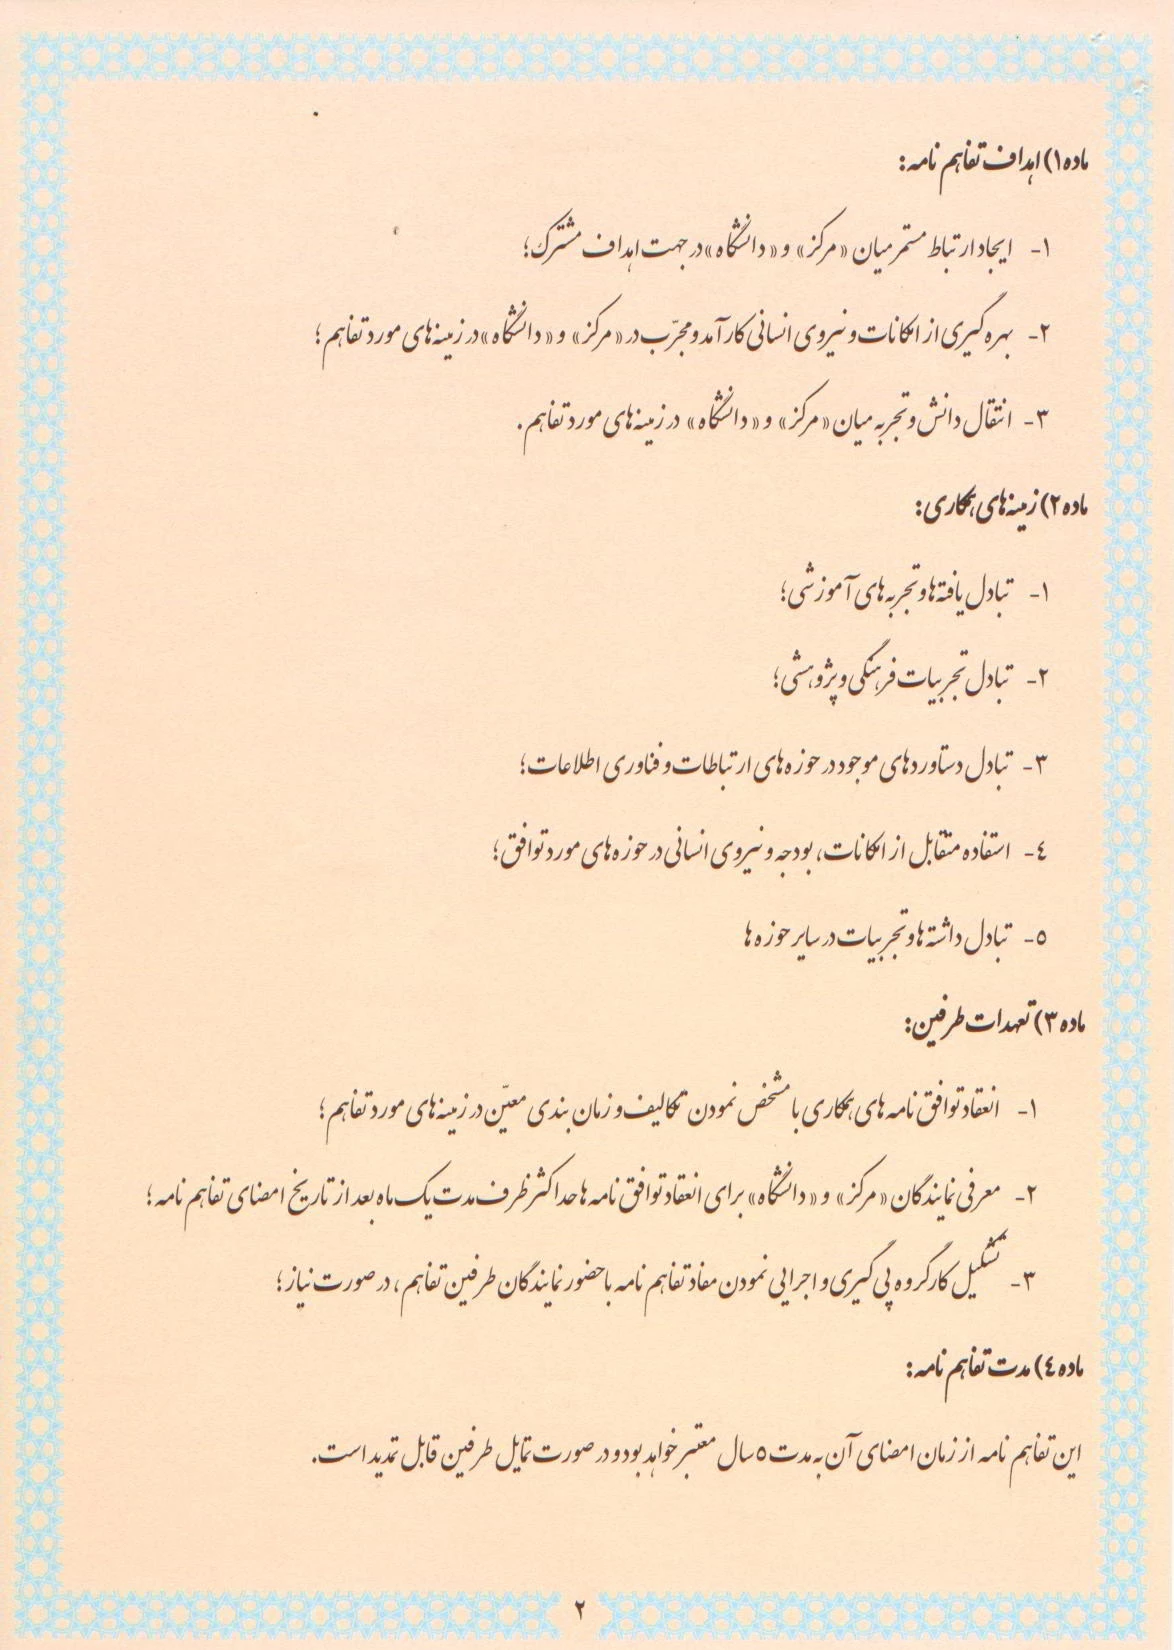 ماده ۱) اهداف تفاهم نامه:
۱- ایجاد ارتباط مستمر میان «مرکز» و «دانشگاه» در جهت اهداف مشترک؛
۲- بهره گیری از امکانات و نیروی انسانی کارآمد و مجرّب در «مرکز» و «دانشگاه» در زمینه‌های مورد تفاهم؛
۳- انتقال دانش و تجربه میان «مرکز» و «دانشگاه» در زمینه‌های مورد تفاهم.
ماده ۲) زمینه‌های همکاری:
۱- تبادل یافته‌ها و تجربه‌های آموزشی؛
۲- تبادل تجربیات فرهنگی و پژوهشی؛
۳- تبادل دستاوردهای موجود در حوزه‌های ارتباطات و فناوری اطلاعات؛
٤- استفاده متقابل از امکانات، بودجه و نیروی انسانی در حوزه‌های مورد توافق؛
۵- تبادل داشته‌ها و تجربیات در سایر حوزه ها
ماده ۳) تعهدات طرفین:
۱- انعقاد توافق نامه های همکاری با مشخص نمودن تکالیف و زمان بندی معیّن در زمینه‌های مورد تفاهم؛
۲- معرفی نمایندگان «مرکز» و «دانشگاه» برای انعقاد توافق نامه ها حداکثر ظرف مدت یک ماه بعد از تاریخ امضای تفاهم نامه؛
۳- تشکیل کارگروه پی گیری و اجرایی نمودن مفاد تفاهم نامه با حضور نمایندگان طرفین تفاهم، در صورت نیاز؛
ماده ٤) مدت تفاهم نامه:
این تفاهم نامه از زمان امضای آن به مدت ۵ سال معتبر خواهد بود و در صورت تمایل طرفین قابل تمدید است.
۲